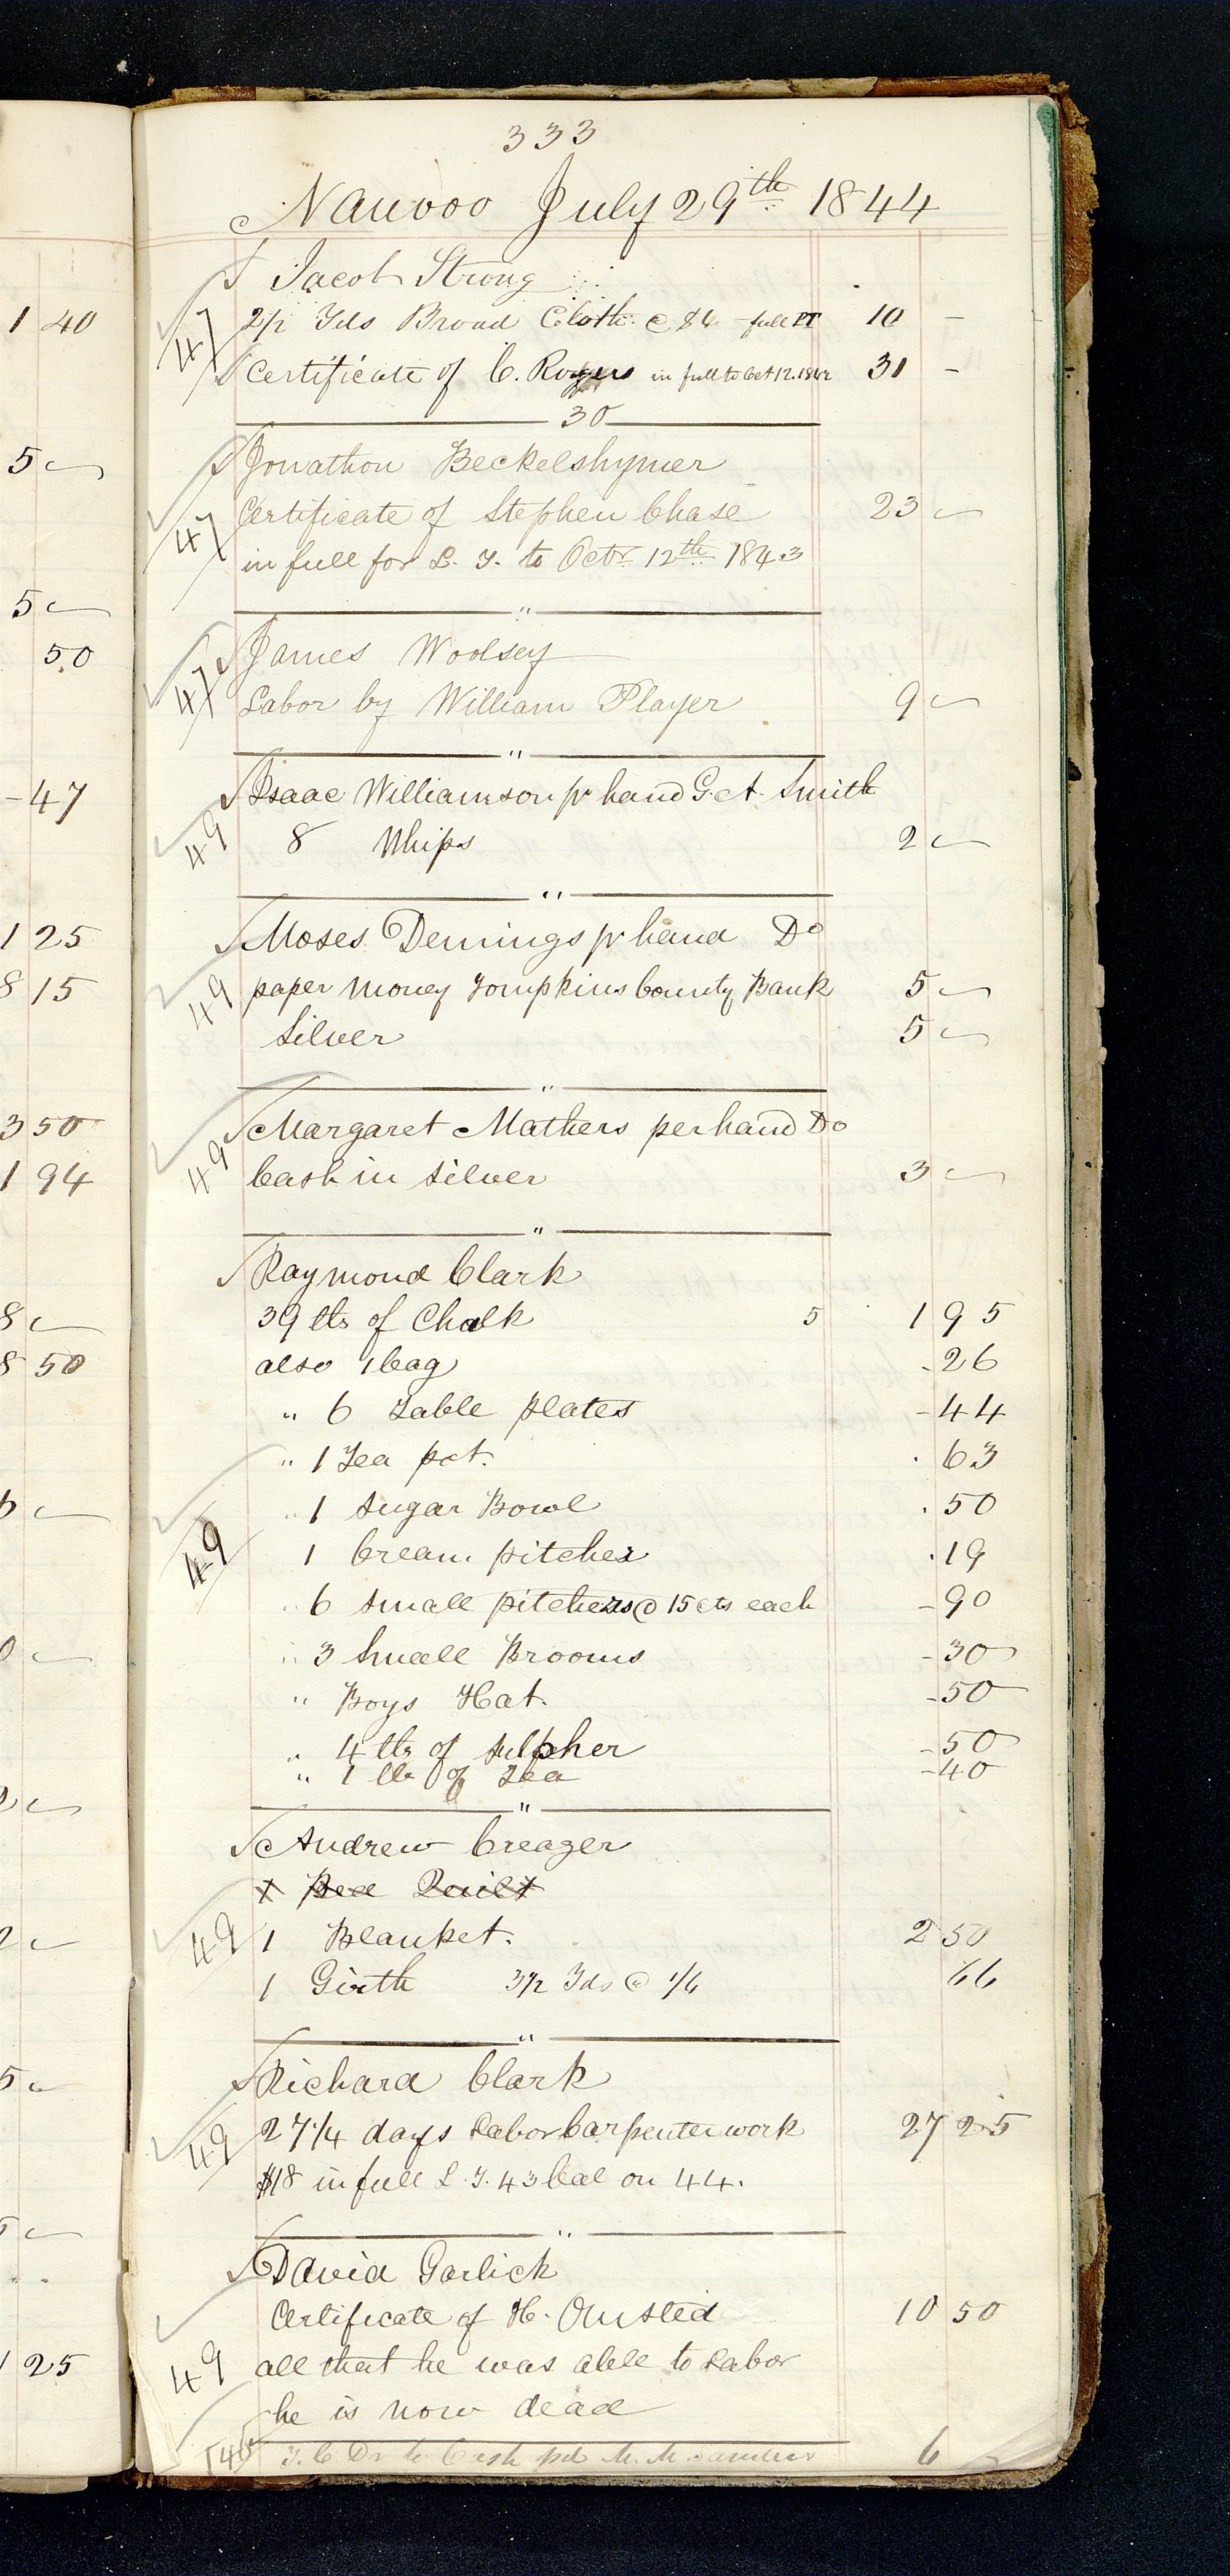 333
Nauvoo July 29th 1844
Jacob Strong
47 2 1/2 Yds Broad Cloth @ $4 - full PT 10 -
Certificate of C. Rogers in full to Oct 12. 1842 31 -
30
Jonathon Beckelshymer
47 Certificate of Stephen Chase 23 -
in full for L. T. to Octr 12th 1843
"
James Woolsey
47 Labor by William Player 9 -
"
Isaac Williamson pr hand G. A. Smith
49 8 Whips 2 -
"
Moses Demings pr hand Do
49 paper money Tompkins County Bank 5 -
Silver 5 -
"
Margaret Mathers per hand Do
49 Cash in Silver 3 -
"
Raymond Clark
39 lbs of Chalk 5 1 95
also 1 bag - 26
" 6 Table plates - 44
" 1 Tea pot. . 63
" 1 Sugar Bowl . 50
49 1 Cream pitcher . 19
" 6 Small pitchers @ 15 cts each - 90
" 3 Small Brooms - 30
" Boys Hat. - 50
" 4 lbs of Sulpher - 50
" 1 lb of Tea - 40
"
Andrew Creager
1 Bed Quilt
49 1 Blanket. 2 50
1 Girth 3 1/2 Yds @ 1/6 66
"
Richard Clark
49 27 1/4 days Labor Carpenter work 27 25
$18 in full L. T. 43 bal on 44.
"
David Garlick
Certificate of H. Omsted 10 50
49 all that he was able to Labor
he is now dead
46 T. C. Dr to Cash pd M. M. Sanders 6 -
1 40
5 -
5 -
50
- 47
1 25
8 15
3 50
1 94
8 -
8 50
1 25